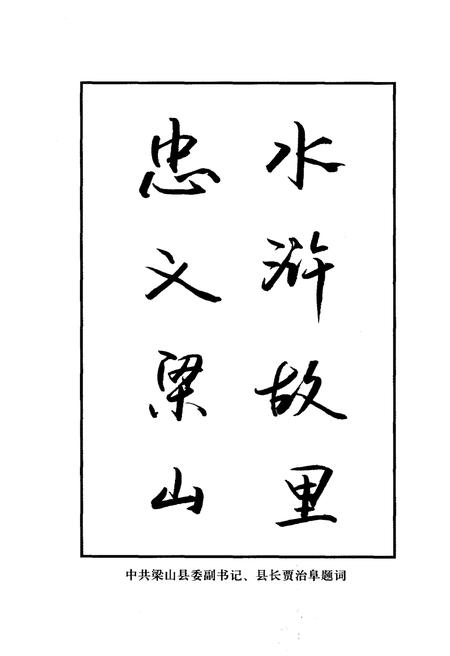 水浒故里
忠义梁山
中共梁山县委副书记、县长贾治阜题词